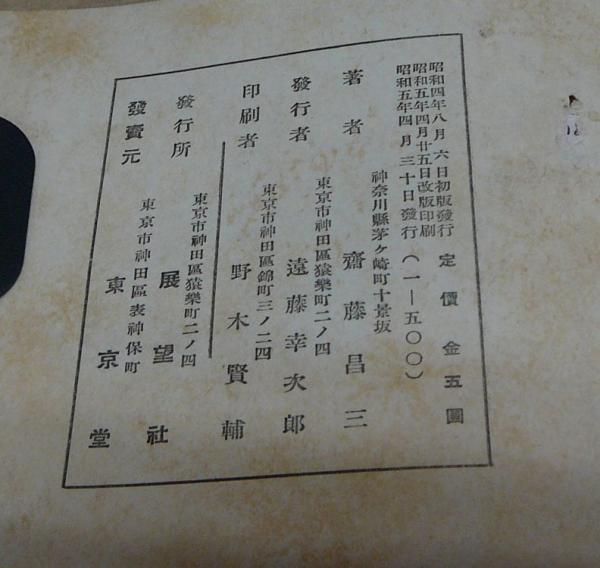 昭和四年八月六日初版發行
昭和五年四月廿五日改版印刷
昭和五年四月三十日發行(一—五〇〇)
定價金五圓
神奈川縣茅ケ崎町十景坂
著者 齋藤昌三
東京市神田區猿樂町二ノ四
發行者 遠藤幸次郎
東京市神田區錦町三ノ二四
印刷者 野木賢輔
東京市神田區猿樂町二ノ四
發行所 展望社
東京市神田區表神保町
發賣元 東京堂